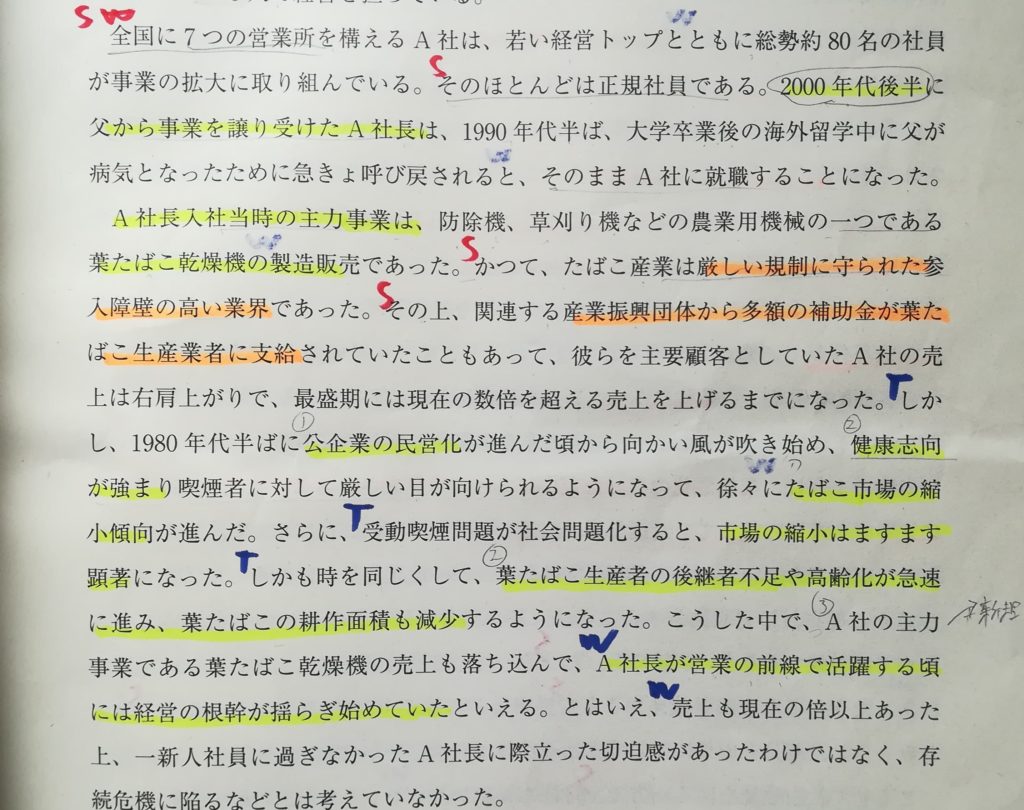 の経営を担っている。
S W
全国に７つの営業所を構えるＡ社は、若い経営トップとともに総勢約 80 名の社員
が事業の拡大に取り組んでいる。そのほとんどは正規社員である。2000 年代後半に
父から事業を譲り受けたＡ社長は、1990 年代半ば、大学卒業後の海外留学中に父が
病気となったために急きょ呼び戻されると、そのままＡ社に就職することになった。
Ａ社長入社当時の主力事業は、防除機、草刈り機などの農業用機械の一つである
葉たばこ乾燥機の製造販売であった。かつて、たばこ産業は厳しい規制に守られた参
入障壁の高い業界であった。その上、関連する産業振興団体から多額の補助金が葉た
ばこ生産業者に支給されていたこともあって、彼らを主要顧客としていたＡ社の売
上は右肩上がりで、最盛期には現在の数倍を超える売上を上げるまでになった。しか
① ②
し、1980 年代半ばに公企業の民営化が進んだ頃から向かい風が吹き始め、健康志向
が強まり喫煙者に対して厳しい目が向けられるようになって、徐々にたばこ市場の縮
小傾向が進んだ。さらに、受動喫煙問題が社会問題化すると、市場の縮小はますます
顕著になった。しかも時を同じくして、葉たばこ生産者の後継者不足や高齢化が急速
に進み、葉たばこの耕作面積も減少するようになった。こうした中で、Ａ社の主力
事業である葉たばこ乾燥機の売上も落ち込んで、Ａ社長が営業の前線で活躍する頃
には経営の根幹が揺らぎ始めていたといえる。とはいえ、売上も現在の倍以上あった
上、一新人社員に過ぎなかったＡ社長に際立った切迫感があったわけではなく、存
続危機に陥るなどとは考えていなかった。